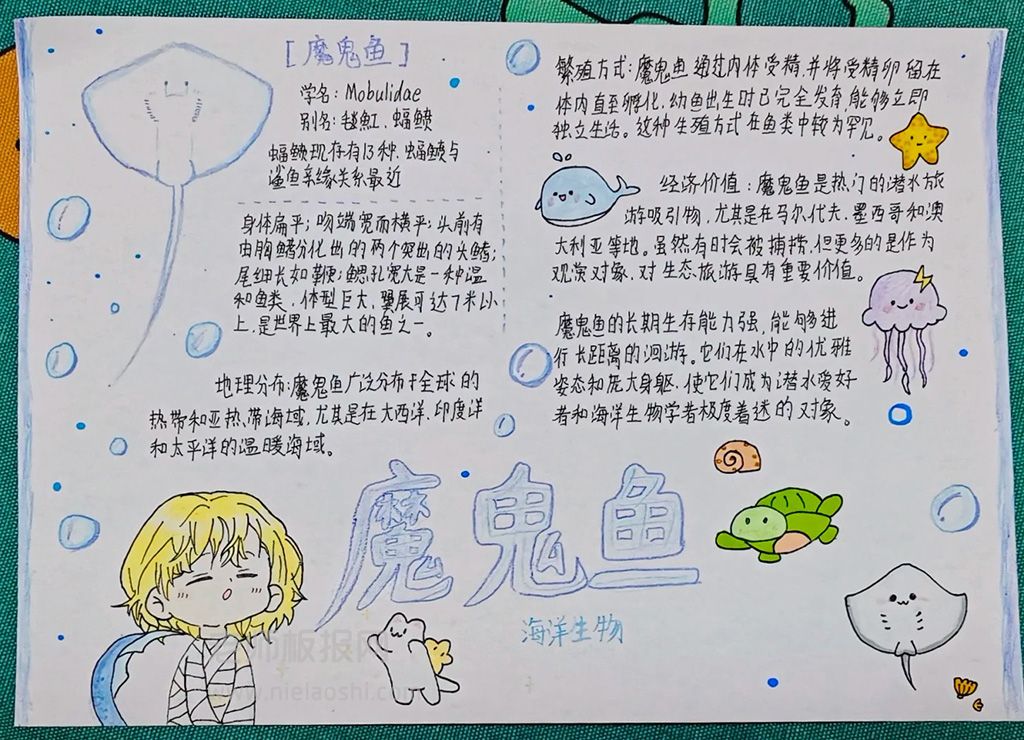 [魔鬼鱼]
学名: Mobulidae
别名: 毯魟、蝠鲼
蝠鲼现存有13种,蝠鲼与
鲨鱼亲缘关系最近
身体扁平;吻端宽而横平;头前有
由胸鳍分化出的两个突出的头鳍;
尾细长如鞭;鳃孔宽大是一种温
和鱼类,体型巨大,翼展可达7米以
上,是世界上最大的鱼之一。
地理分布:魔鬼鱼广泛分布于全球的
热带和亚热带海域,尤其是在大西洋、印度洋
和太平洋的温暖海域。
繁殖方式:魔鬼鱼通过内体受精,并将受精卵留在
体内直至孵化,幼鱼出生时已完全发育,能够立即
独立生活。这种生殖方式在鱼类中较为罕见。
经济价值:魔鬼鱼是热门的潜水旅
游吸引物,尤其是在马尔代夫、墨西哥和澳
大利亚等地。虽然有时会被捕捞,但更多的是作为
观赏对象,对生态旅游具有重要价值。
魔鬼鱼的长期生存能力强,能够进
行长距离的洄游。它们在水中的优雅
姿态和庞大身躯,使它们成为潜水爱好
者和海洋生物学者极度着迷的对象。
魔鬼鱼
海洋生物
老师板报网
www.nielaoshi.com